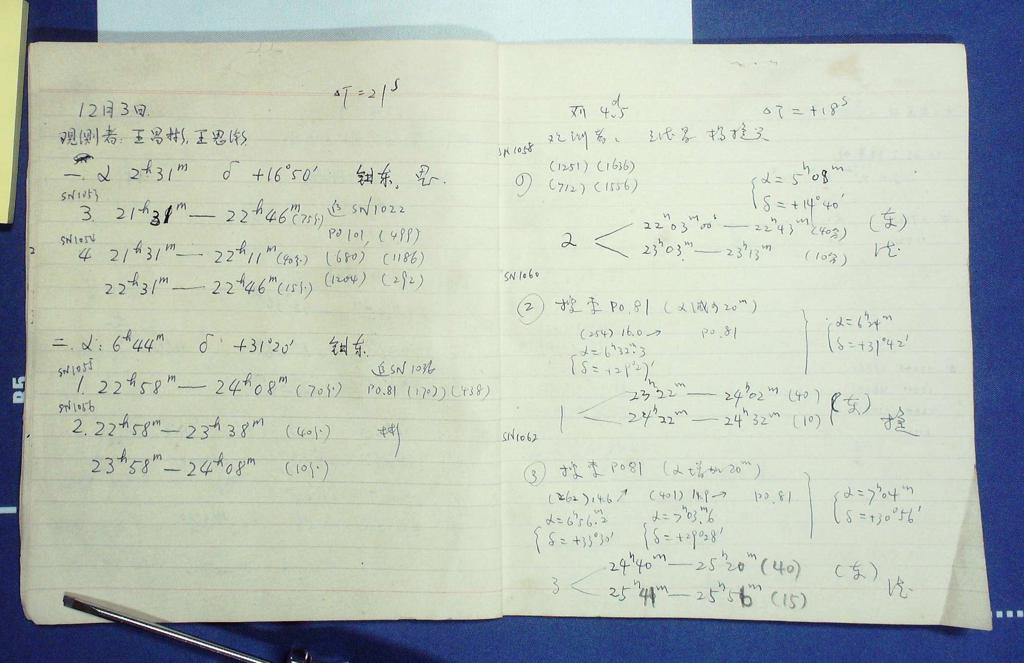 ΔT=21ˢ
12月3日
观测者: 王思彬, 王思潮
一. α 2ʰ31ᵐ δ +16°50′ 钟东. 思.
SN1053
3. 21ʰ31ᵐ — 22ʰ46ᵐ (75分) 近 SN1022
PO101 (499)
SN1054
4 21ʰ31ᵐ — 22ʰ11ᵐ (40分) (680) (1186)
22ʰ31ᵐ — 22ʰ46ᵐ (15分) (1204) (292)
二. α: 6ʰ44ᵐ δ +31°20′ 钟东.
SN1055
近SN1036
1. 22ʰ58ᵐ — 24ʰ08ᵐ (70分) PO.81 (1702) (438)
SN1056
2. 22ʰ58ᵐ — 23ʰ38ᵐ (40分) 彬
23ʰ58ᵐ — 24ʰ08ᵐ (10分)
4ᵈ.5 ΔT=+18ˢ
SN1058
(1251) (1636)
① (712) (1556)
{ α=5ʰ08ᵐ
δ=+14°40′
2 < 22ʰ03ᵐ00ˢ — 22ʰ43ᵐ (40分) (东)
23ʰ03ᵐ — 23ʰ13ᵐ (10分)
SN1060
② 搜索 PO.81 (α减少20ᵐ)
(254) 16.0 → PO.81
{ α=6ʰ32ᵐ.3
δ=+29°27′
{ α=6ʰ24ᵐ
δ=+31°42′
1 < 23ʰ22ᵐ — 24ʰ02ᵐ (40) (东)
24ʰ22ᵐ — 24ʰ32ᵐ (10)
SN1062
③ 搜索 PO81 (α增加20ᵐ)
(262) 14.6 ↗ (401) 14.9 → PO.81
{ α=6ʰ56ᵐ.2
δ=+33°30′
{ α=7ʰ03ᵐ.6
δ=+29°28′
{ α=7ʰ04ᵐ
δ=+30°56′
3 < 24ʰ40ᵐ — 25ʰ20ᵐ (40) (东)
25ʰ41ᵐ — 25ʰ56ᵐ (15)